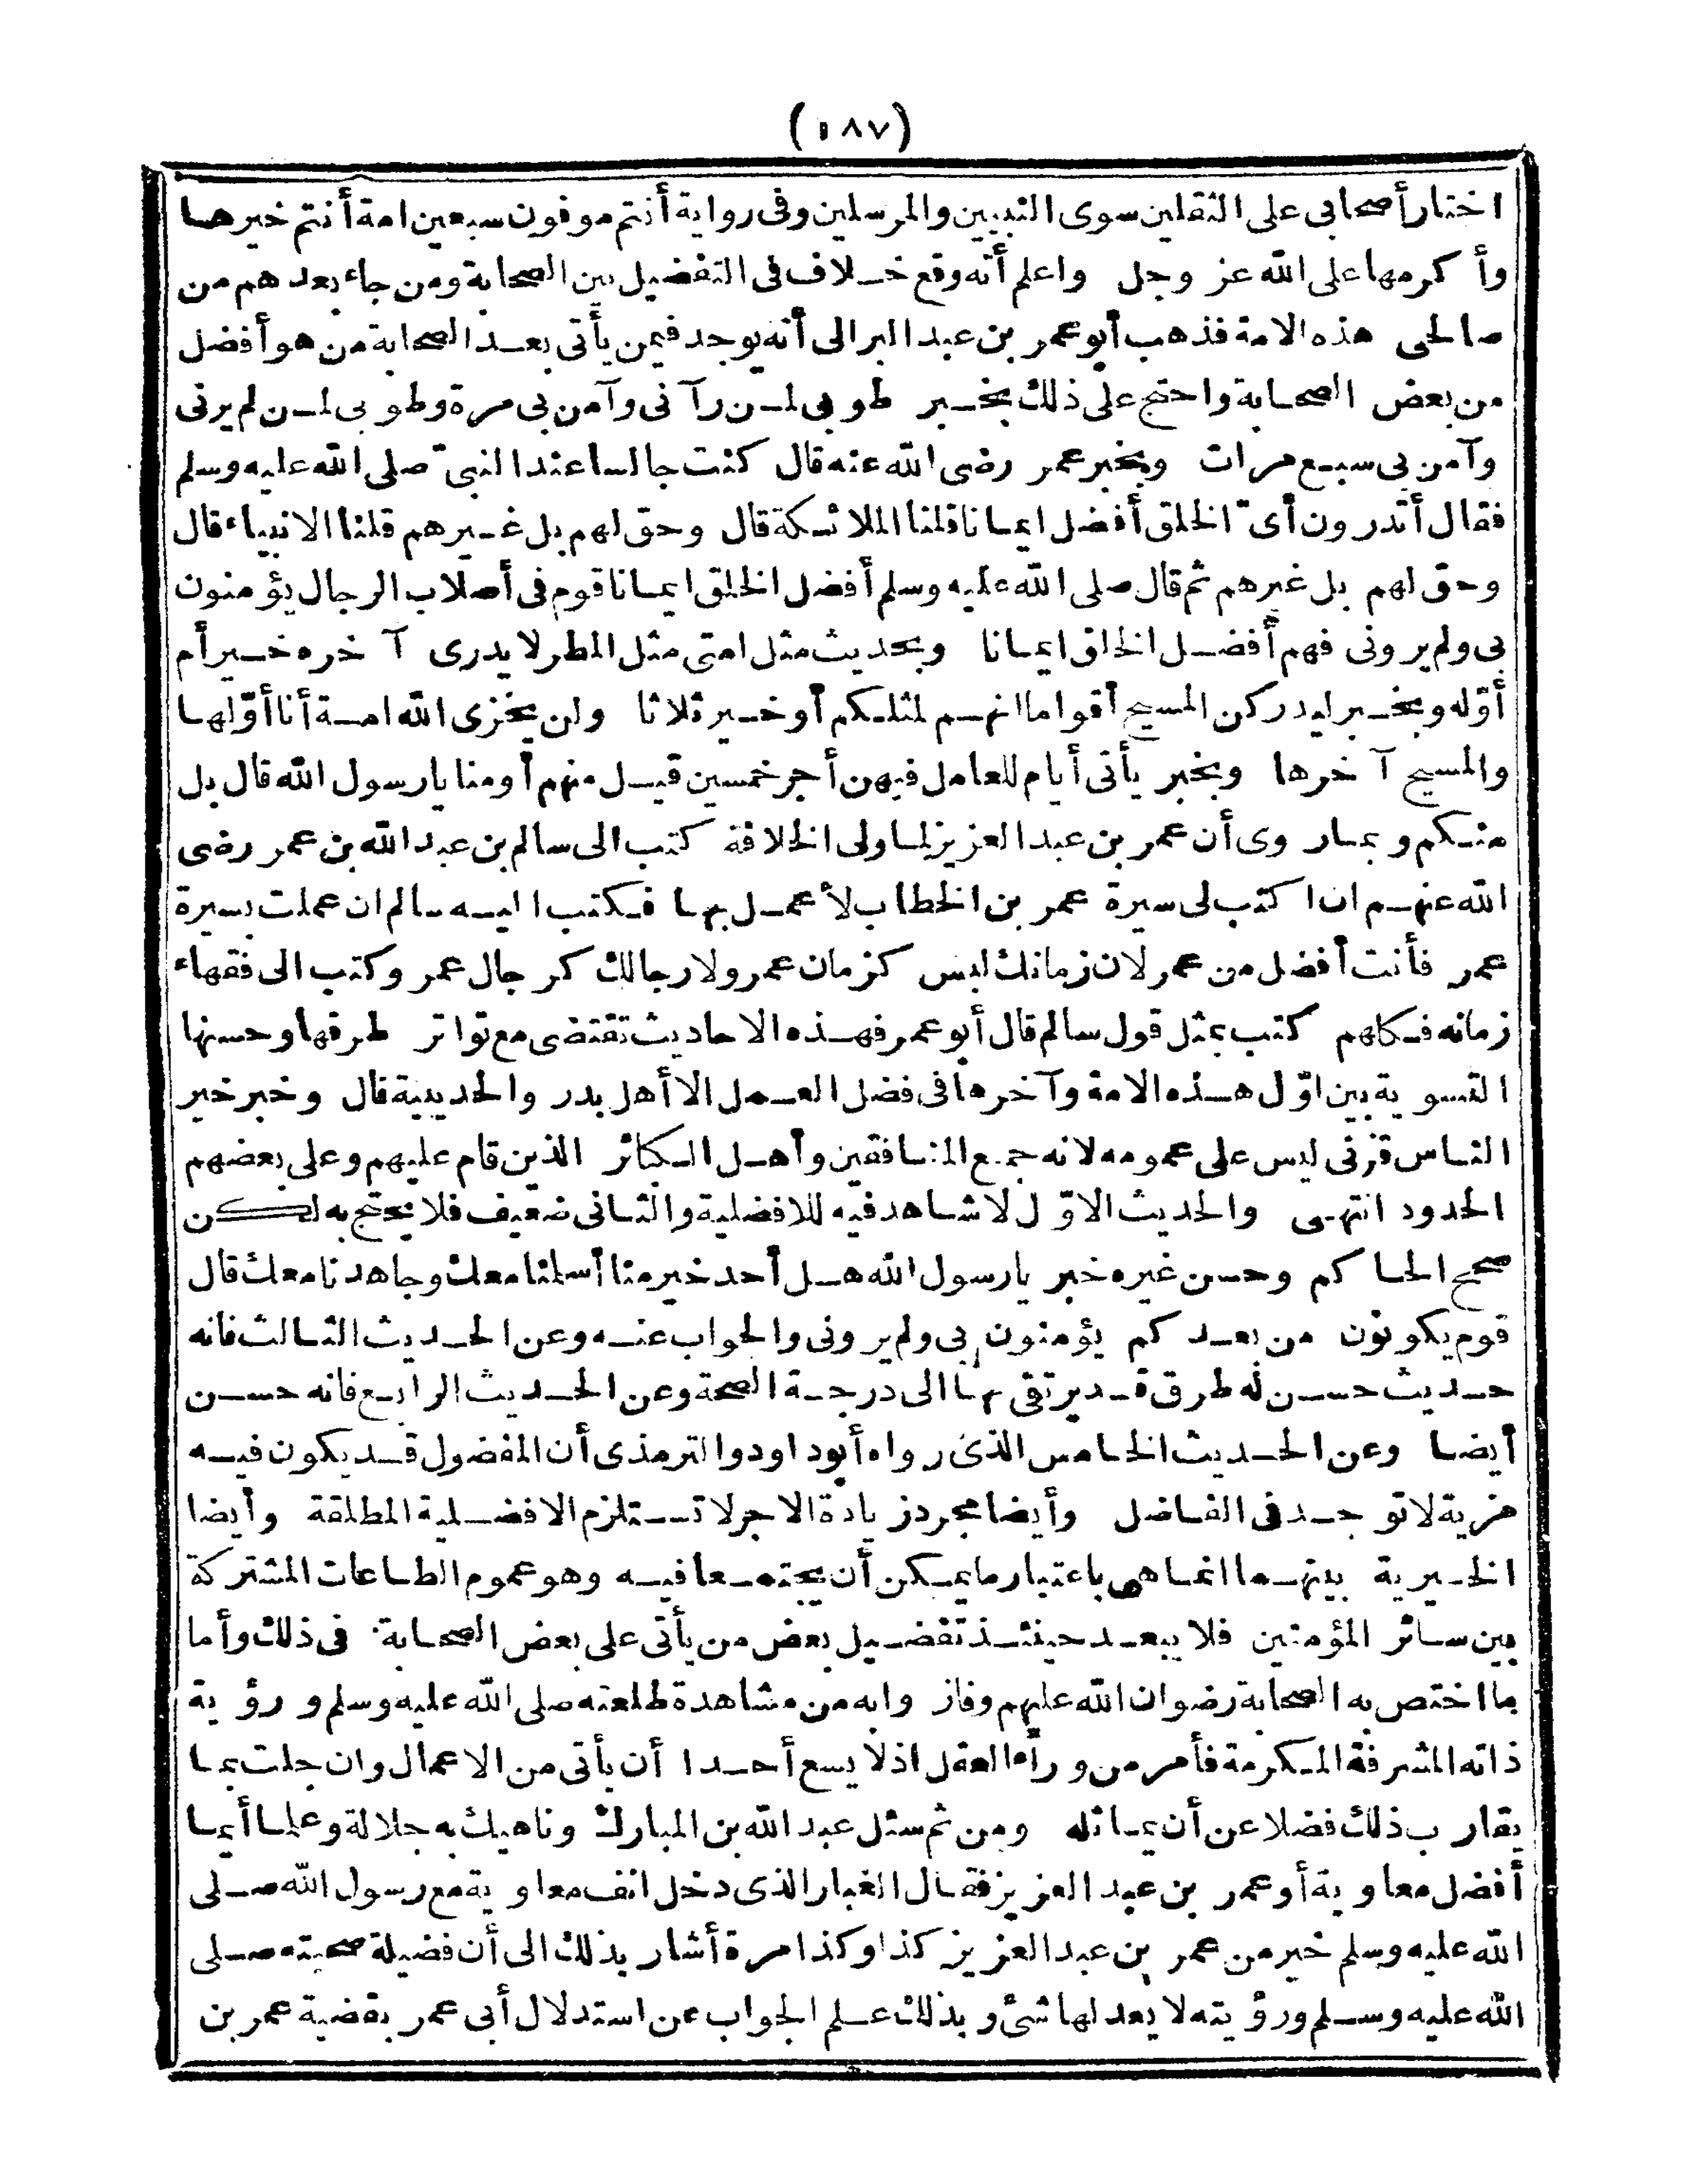 (١٨٧)
اختار أصحابى على الثقلين سوى النبيين والمرسلين وفى رواية أنتم موفون سبعين امة أنتم خيرها
وأكرمها على الله عز وجل واعلم أنه وقع خلاف فى التفضيل بين الصحابة ومن جاء بعدهم من
صالحى هذه الامة فذهب أبو عمر بن عبد البر الى أنه يوجد فيمن يأتى بعد الصحابة من هو أفضل
من بعض الصحابة واحتج على ذلك بخبر طوبى لمن رآنى وآمن بى مرة وطوبى لمن لم يرنى
وآمن بى سبع مرات وبخبر عمر رضى الله عنه قال كنت جالسا عند النبى صلى الله عليه وسلم
فقال أتدرون أى الخلق أفضل ايمانا قلنا الملائكة قال وحق لهم بل غيرهم قلنا الانبياء قال
وحق لهم بل غيرهم ثم قال صلى الله عليه وسلم أفضل الخلق ايمانا قوم فى أصلاب الرجال يؤمنون
بى ولم يرونى فهم أفضل الخلق ايمانا وبحديث مثل امتى مثل المطر لا يدرى آخره خير أم
أوّله وبخبر ليدركن المسيح أقواما انهم لمثلكم أو خير ثلاثا ولن يخزى الله امة أنا أوّلها
والمسيح آخرها وبخبر يأتى أيام للعامل فيهن أجر خمسين قيل منهم أو منا يا رسول الله قال بل
منكم وبما روى أن عمر بن عبد العزيز لما ولى الخلافة كتب الى سالم بن عبد الله بن عمر رضى
الله عنهم ان اكتب لى سيرة عمر بن الخطاب لأعمل بها فكتب اليه سالم ان عملت بسيرة
عمر فأنت أفضل من عمر لان زمانك ليس كزمان عمر ولا رجالك كرجال عمر وكتب الى فقهاء
زمانه فكلهم كتب بمثل قول سالم قال أبو عمر فهذه الاحاديث تقتضى مع تواتر طرقها وحسنها
التسوية بين اوّل هذه الامة وآخرها فى فضل العمل الا أهل بدر والحديبية قال وخبر خير
الناس قرنى ليس على عمومه لانه جمع المنافقين وأهل الكبائر الذين قام عليهم وعلى بعضهم
الحدود انتهى والحديث الاوّل لا شاهد فيه للافضلية والثانى ضعيف فلا يحتج به لكن
صحح الحاكم وحسن غيره خبر يا رسول الله هل أحد خير منا أسلمنا معك وجاهدنا معك قال
قوم يكونون من بعدكم يؤمنون بى ولم يرونى والجواب عنه وعن الحديث الثالث فانه
حديث حسن له طرق قد يرتقى بها الى درجة الصحة وعن الحديث الرابع فانه حسن
أيضا وعن الحديث الخامس الذى رواه أبو داود والترمذى أن المفضول قد يكون فيه
مزية لا توجد فى الفاضل وأيضا مجرد زيادة الاجر لا تستلزم الافضلية المطلقة وأيضا
الخيرية بينهما انما هى باعتبار ما يمكن أن يجتمعا فيه وهو عموم الطاعات المشتركة
بين سائر المؤمنين فلا يبعد حينئذ تفضيل بعض من يأتى على بعض الصحابة فى ذلك وأما
ما اختص به الصحابة رضوان الله عليهم وفازوا به من مشاهدة طلعته صلى الله عليه وسلم ورؤية
ذاته المشرفة المكرمة فأمر من وراء العقل اذ لا يسع أحدا أن يأتى من الاعمال وان جلت بما
يقارب ذلك فضلا عن أن يماثله ومن ثم سئل عبد الله بن المبارك وناهيك به جلالة وعلما أيما
أفضل معاوية أو عمر بن عبد العزيز فقال الغبار الذى دخل انف معاوية مع رسول الله صلى
الله عليه وسلم خير من عمر بن عبد العزيز كذا وكذا مرة أشار بذلك الى أن فضيلة صحبته صلى
الله عليه وسلم ورؤيته لا يعدلها شئ وبذلك علم الجواب عن استدلال أبى عمر بقضية عمر بن